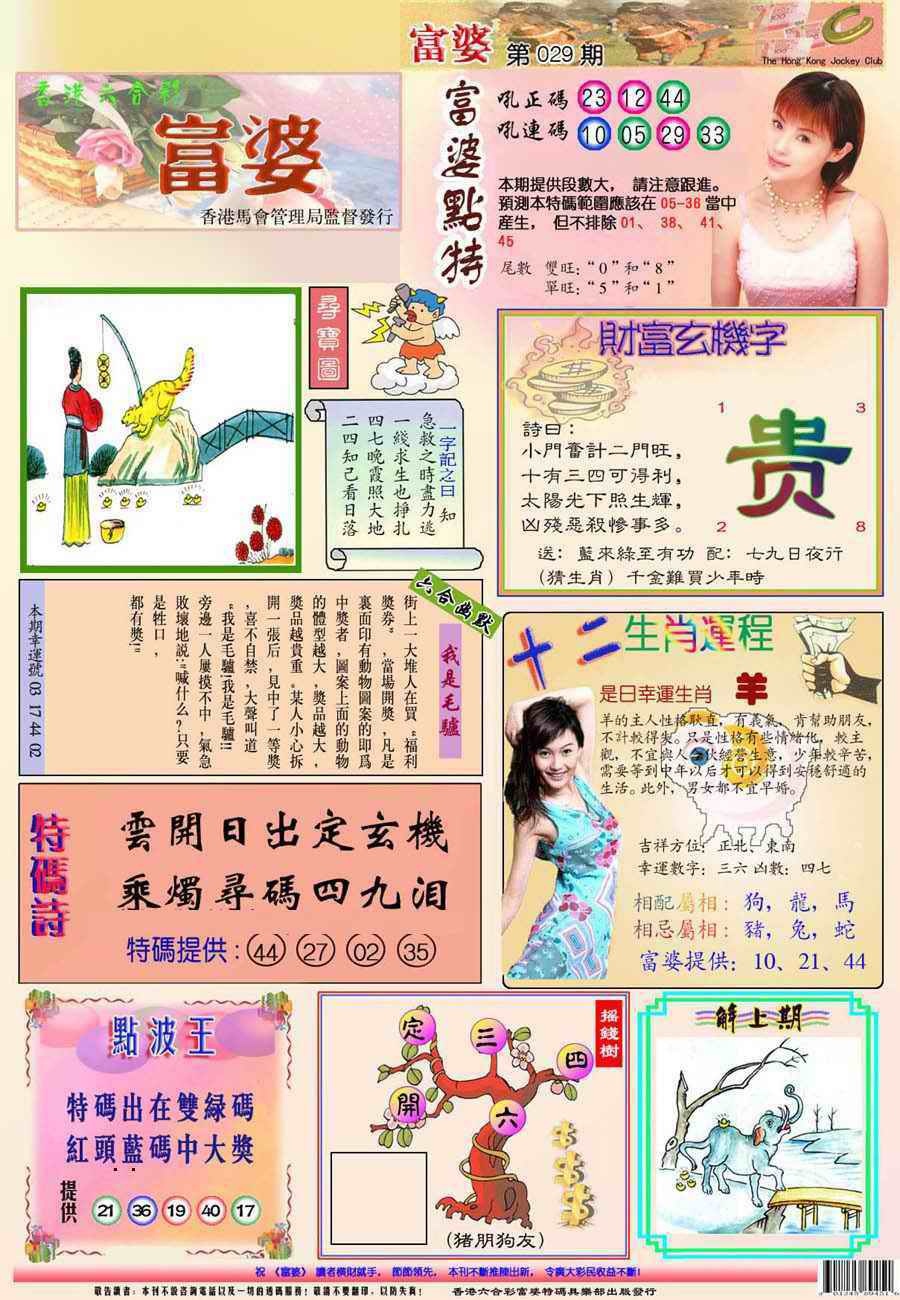 富婆 第 029 期
The Hong Kong Jockey Club
香港六合彩
富婆
香港馬會管理局監督發行
富婆點特
吼正碼 23 12 44
吼連碼 10 05 29 33
本期提供段數大， 請注意跟進。
預測本特碼範圍應該在 05-36 當中
産生， 但不排除 01、 38、 41、
45
尾數 雙旺:“0”和“8”
單旺:“5”和“1”
尋寶圖
一字記之曰 知
急救之時盡力逃
一綫求生也掙扎
四七晚霞照大地
二四知己看日落
財富玄機字
詩曰：
小門奮計二門旺，
十有三四可得利，
太陽光下照生輝，
凶殘惡殺慘事多。
1 3
贵
2 8
送: 藍來綠至有功 配: 七九日夜行
(猜生肖) 千金難買少年時
六合幽默
我是毛驢
街上一大堆人在買“福利
獎券”，當場開獎，凡是
裏面印有動物圖案的即爲
中獎者，圖案上面的動物
的體型越大，獎品越大，
獎品越貴重。某人小心拆
開一張后，見中了一等獎
，喜不自禁，大聲叫道
:“我是毛驢!我是毛驢!!
旁邊一人屢摸不中，氣急
敗壞地説:“喊什么？只要
是牲口，
都有獎!”
本期幸運號 03 17 44 02
十二生肖運程
是日幸運生肖 羊
羊的主人性格耿直，有義氣，肯幫助朋友，
不計較得失。只是性格有些情緒化，較主
觀，不宜與人合伙經營生意，少年較辛苦，
需要等到中年以后才可以得到安穩舒適的
生活。此外，男女都不宜早婚。
吉祥方位：正北、東南
幸運數字：三六 凶數：四七
相配屬相：狗，龍，馬
相忌屬相：豬，兔，蛇
富婆提供：10、21、44
特碼詩
雲開日出定玄機
乘燭尋碼四九泪
特碼提供：44 27 02 35
點波王
特碼出在雙緑碼
紅頭藍碼中大獎
提供 21 36 19 40 17
搖錢樹
定 三 四
開 六
(猪朋狗友)
解上期
祝 《富婆》 讀者横財就手， 節節領先， 本刊不斷推陳出新， 令廣大彩民收益不斷!
敬告讀者：本刊不設咨詢電話以及一切的透碼服務！敬請不要翻印，以防失真！ 香港六合彩富婆特碼具樂部出版發行